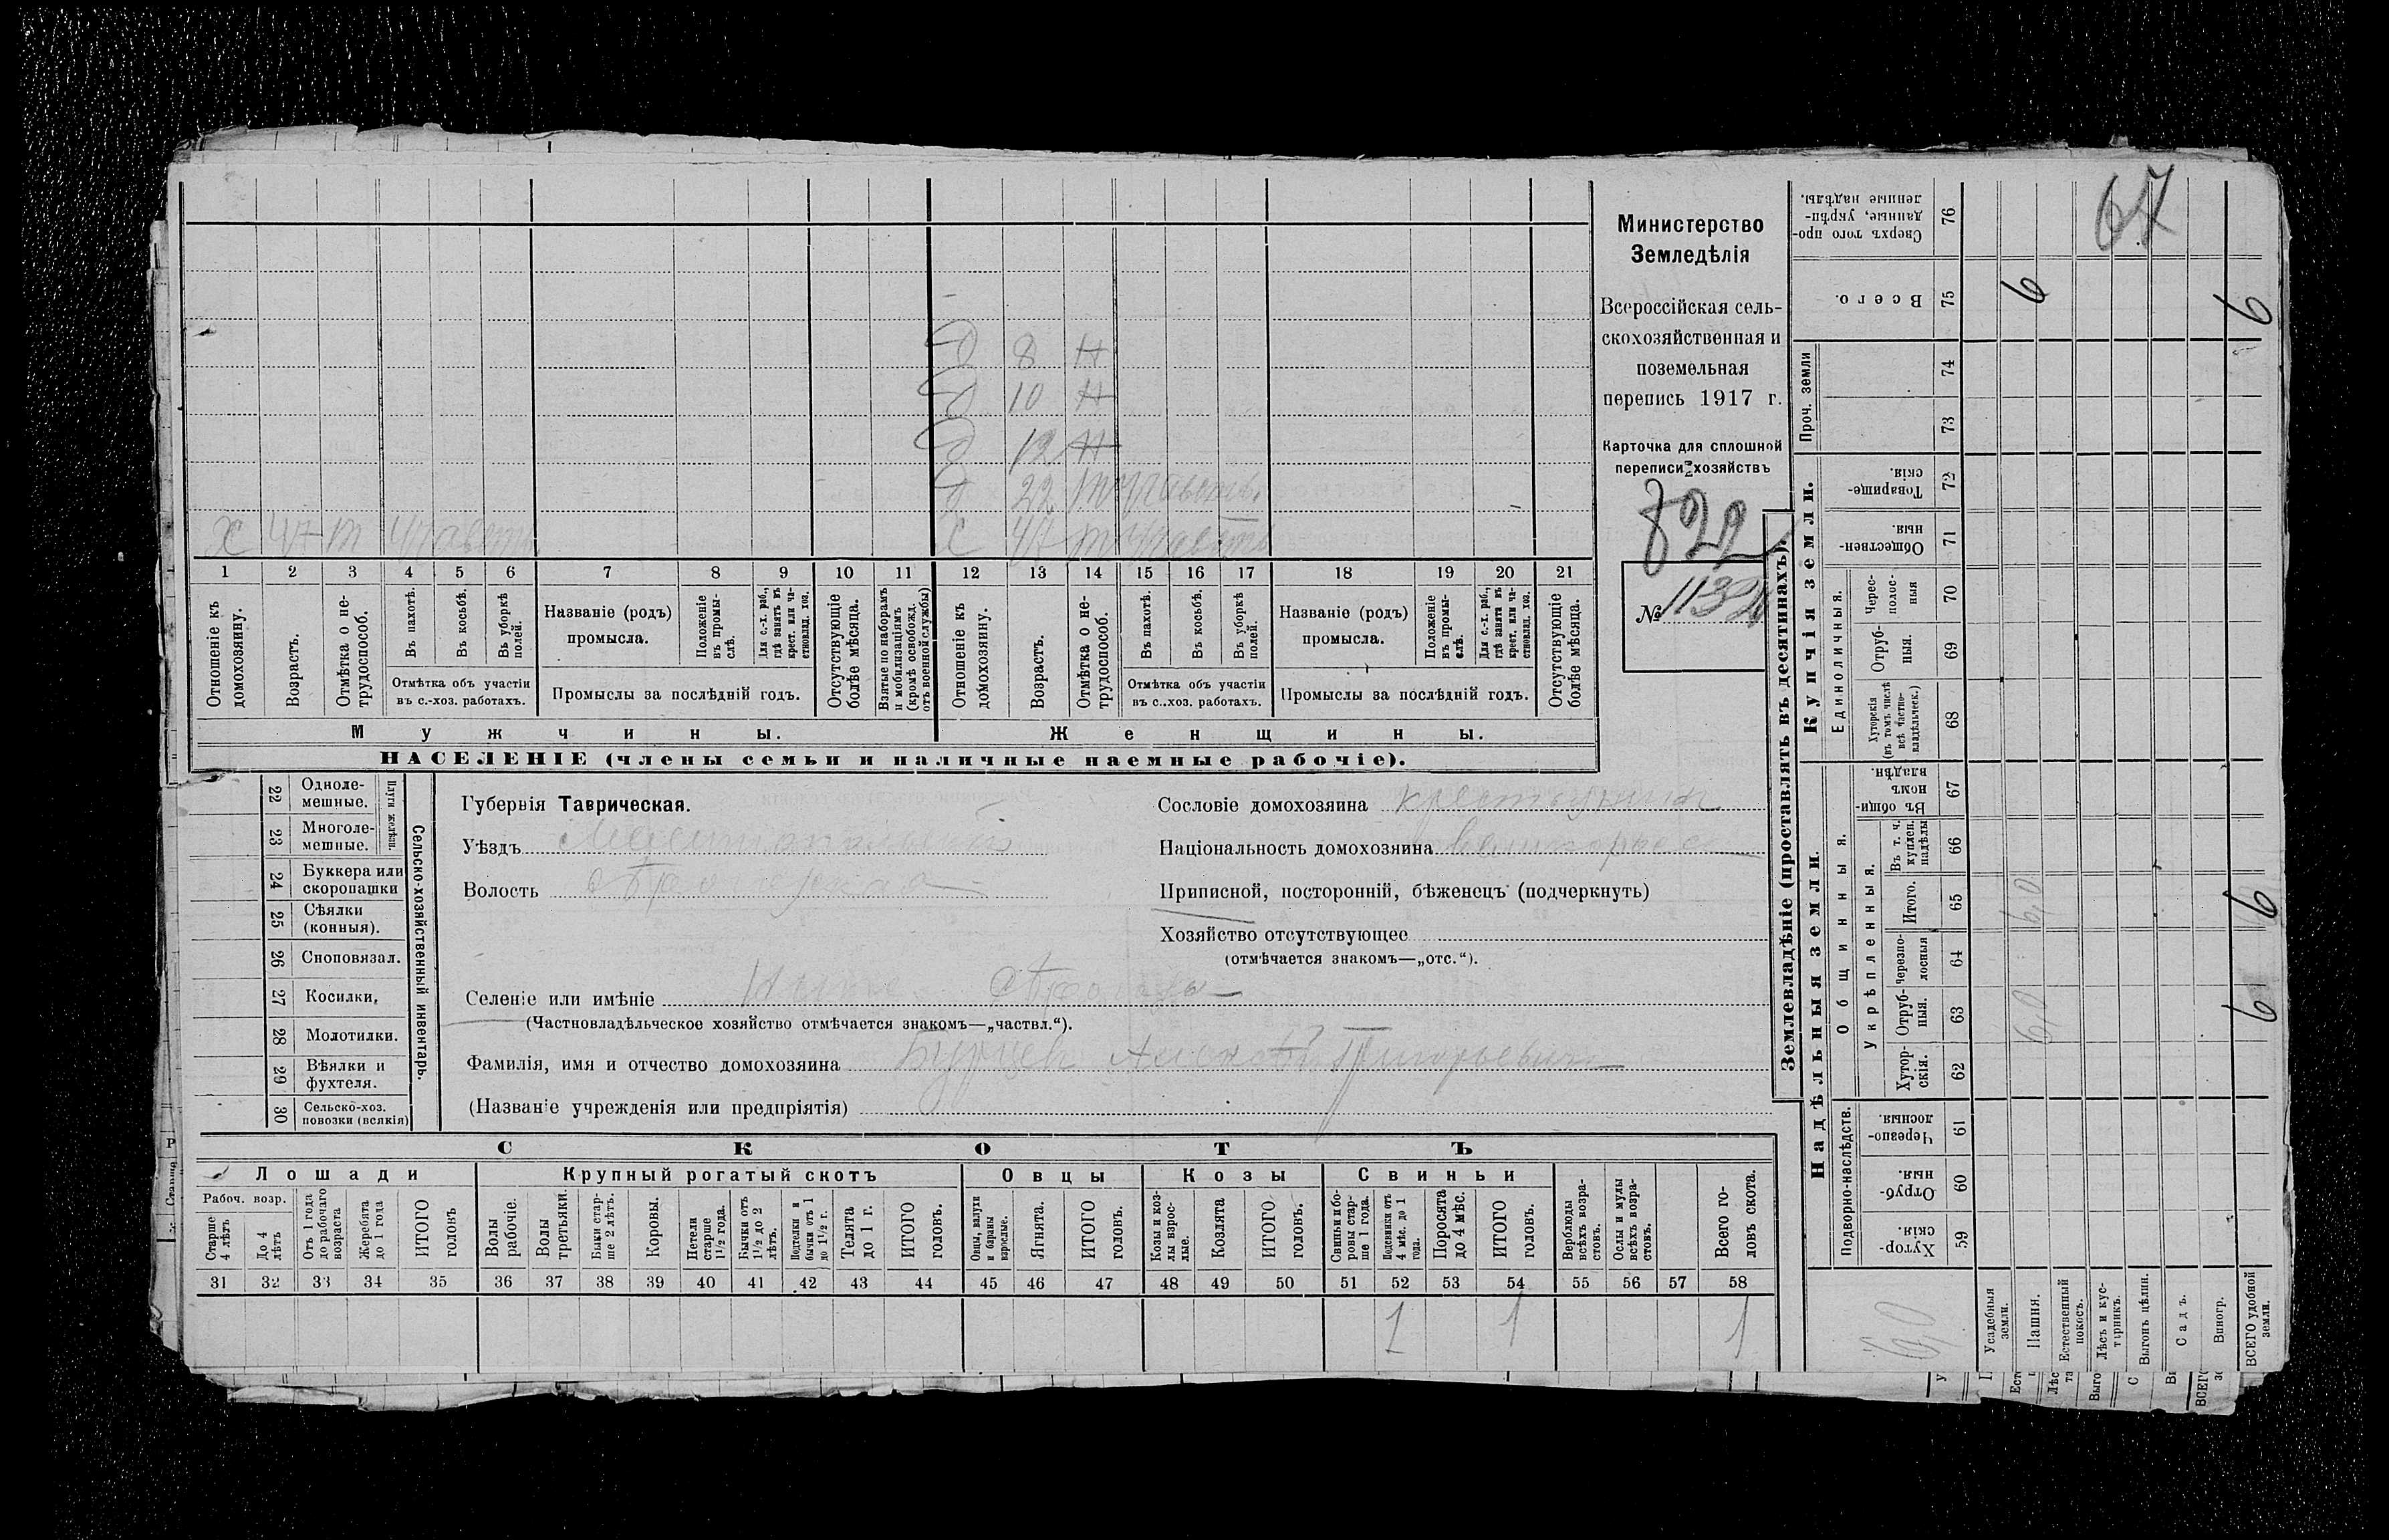 Министерство
Земледѣлія
Всероссійская сель-
скохозяйственная и
поземельная
перепись 1917 г.
Карточка для сплошной
переписи хозяйствъ
822
№ 1132
д 8 Н
д 10 Н
д 12 Н
д 22
х 47 т
х 47
1 2 3 4 5 6 7 8 9 10 11 12 13 14 15 16 17 18 19 20 21
Отношеніе къ домохозяину.
Возрастъ.
Отмѣтка о не-трудоспособ.
Въ пахотѣ.
Въ косьбѣ.
Въ уборкѣ полей.
Отмѣтка объ участіи
въ с.-хоз. работахъ.
Названіе (родъ)
промысла.
Положеніе въ промы-слѣ.
Для с.-х. раб., гдѣ занятъ въ крест. или ча-стновлад. хоз.
Промыслы за послѣдній годъ.
Отсутствующіе болѣе мѣсяца.
Взятые по наборамъ и мобилизаціямъ (кромѣ освобожд. отъ военной службы)
Отношеніе къ домохозяину.
Возрастъ.
Отмѣтка о не-трудоспособ.
Въ пахотѣ.
Въ косьбѣ.
Въ уборкѣ полей.
Отмѣтка объ участіи
въ с.-хоз. работахъ.
Названіе (родъ)
промысла.
Положеніе въ промы-слѣ.
Для с.-х. раб., гдѣ заняты въ крест. или ча-стновлад. хоз.
Промыслы за послѣдній годъ.
Отсутствующіе болѣе мѣсяца.
Мужчины. Женщины.
НАСЕЛЕНІЕ (члены семьи и наличные наемные рабочіе).
Сельско-хозяйственный инвентарь.
Плуги желѣзн.
22 Одноле-мешные.
23 Многоле-мешные.
24 Буккера или скоропашки
25 Сѣялки (конныя).
26 Сноповязал.
27 Косилки,
28 Молотилки.
29 Вѣялки и фухтеля.
30 Сельско-хоз. повозки (всякія)
Губернія Таврическая.
Уѣздъ
Волость
Селеніе или имѣніе
(Частновладѣльческое хозяйство отмѣчается знакомъ—„частвл.“).
Фамилія, имя и отчество домохозяина Алексѣй Григорьевич
(Названіе учрежденія или предпріятія)
Сословіе домохозяина крестьянин
Національность домохозяина
Приписной, посторонній, бѣженецъ (подчеркнуть)
Хозяйство отсутствующее
(отмѣчается знакомъ—„отс.“).
СКОТЪ
Лошади Крупный рогатый скотъ Овцы Козы Свиньи
Рабоч. возр.
Старше 4 лѣтъ
До 4 лѣтъ
Отъ 1 года до рабочаго возраста
Жеребята до 1 года
ИТОГО головъ
Волы рабочіе.
Волы третьяки.
Быки стар-ше 2 лѣтъ.
Коровы.
Нетели старше 1½ года.
Бычки отъ 1½ до 2 лѣтъ.
Подтелки и бычки отъ 1 до 1½ г.
Телята до 1 г.
ИТОГО головъ.
Овцы, валухи и бараны взрослые.
Ягнята.
ИТОГО головъ.
Козы и коз-лы взрос-лые.
Козлята
ИТОГО головъ.
Свиньи и бо-ровы стар-ше 1 года.
Подсвинки отъ 4 мѣс. до 1 года.
Поросята до 4 мѣс.
ИТОГО головъ.
Верблюды всѣхъ возра-стовъ.
Ослы и мулы всѣхъ возра-стовъ.
Всего го-ловъ скота.
31 32 33 34 35 36 37 38 39 40 41 42 43 44 45 46 47 48 49 50 51 52 53 54 55 56 57 58
1 1 1
Землевладѣніе (проставлять въ десятинахъ).
Надѣльныя земли.
Купчія земли.
Проч. земли
Подворно-наслѣдств.
Общинныя.
Укрѣпленныя.
Единоличныя.
Хутор-скія. 59
Отруб-ныя. 60
Черезпо-лосныя. 61
Хутор-скія. 62
Отруб-ныя. 63
Черезпо-лосныя 64
Итого. 65
Въ т. ч. куплен. надѣлы 66
Въ общи-номъ владѣн. 67
Хуторскія (въ томъ числѣ всѣ частно-владѣльческ.) 68
Отруб-ныя. 69
Черес-полос-ныя 70
Обществен-ныя. 71
Товарище-скія. 72
73
74
Всего. 75
Сверхъ того про-данные, укрѣп-ленные надѣлы. 76
67
Усадебныя земли.
Пашня. 6,0 6,0 6
Естественный покосъ.
Лѣсъ и кус-тарникъ.
Выгонъ цѣлин.
Садъ.
Виногр.
ВСЕГО удобной земли. 6 6 6
6,0